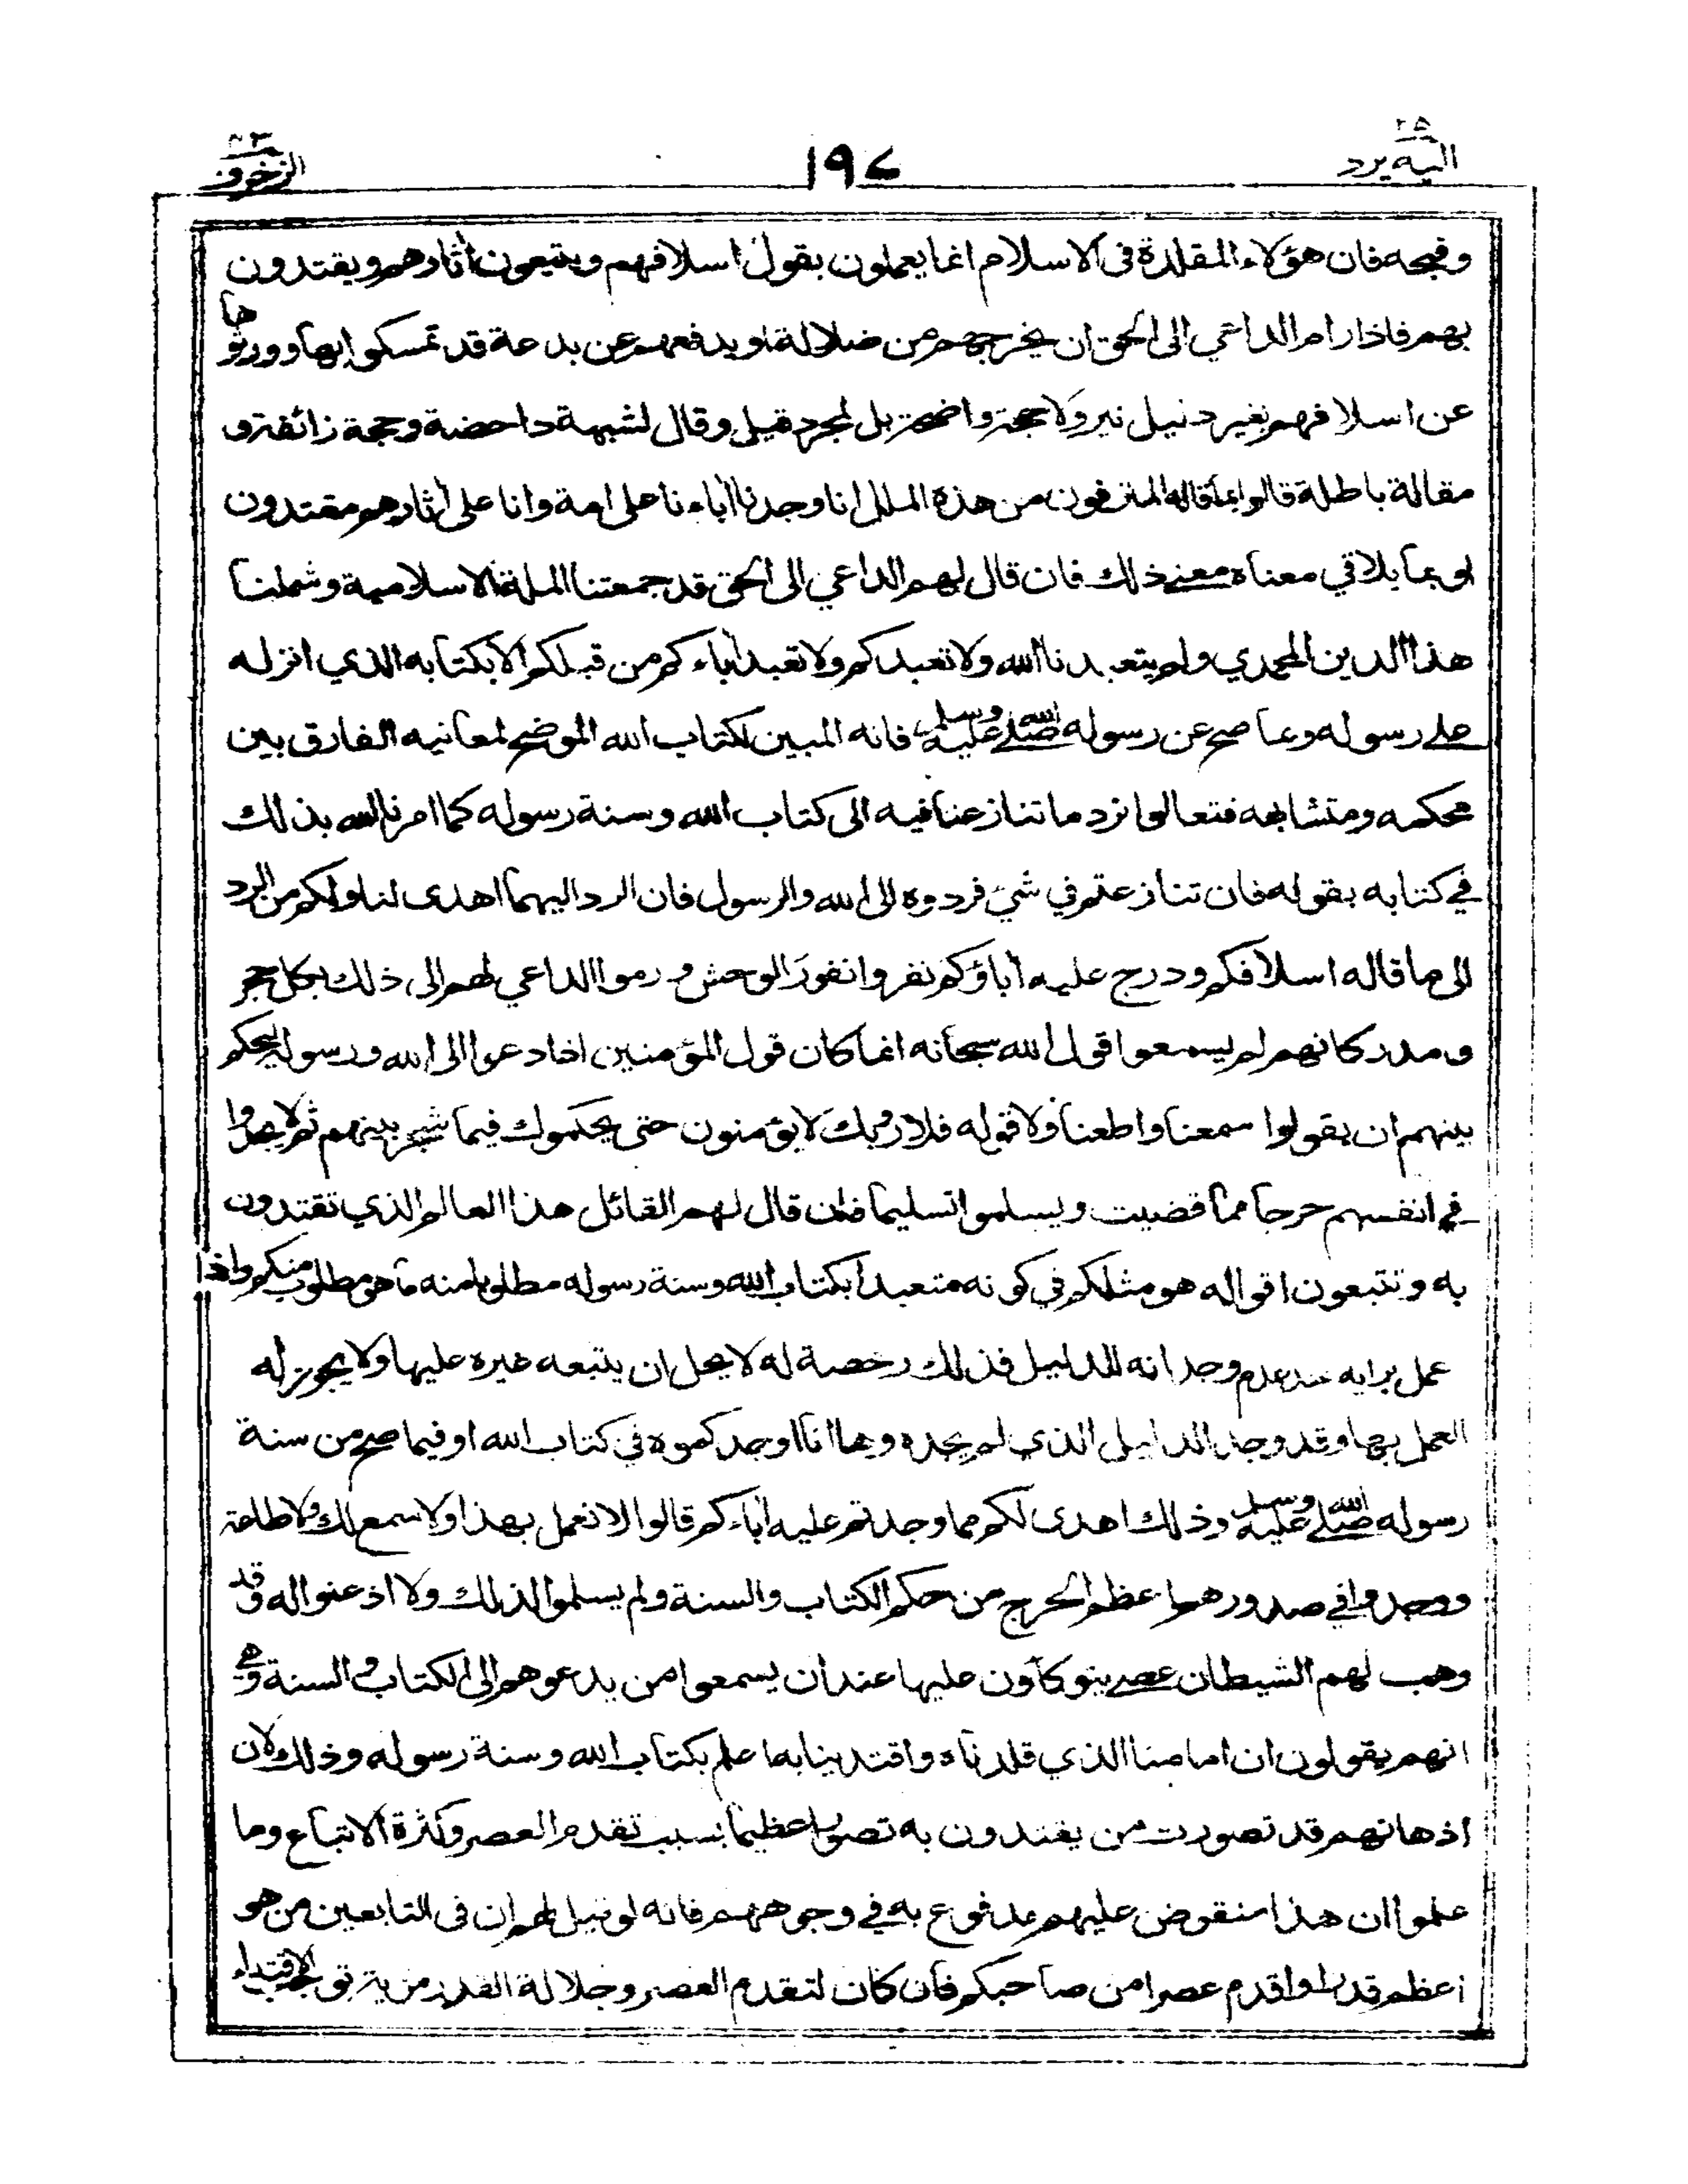 ٢٥
اليه يرد
١٩٧
٤٣
الزخرف
وقبحه فان هؤلاء المقلدة فى الاسلام انما يعملون بقول اسلافهم ويتبعون أثارهم ويقتدون
بهم فاذا رام الداعي الى الحق ان يخرجهم من ضلالة او يدفعهم عن بدعة قد تمسكوا بها وورثوها
عن اسلافهم بغير دليل نير ولا حجة واضحة بل لمجرد قيل وقال لشبهة داحضة وحجة زائفة و
مقالة باطلة قالوا بما قاله المترفون من هذه الملل انا وجدنا أباءنا على امة وانا على أثارهم مقتدون
او بما يلاقي معناه معنى ذلك فان قال لهم الداعي الى الحق قد جمعتنا الملة الاسلامية وشملنا
هذا الدين المحمدي ولم يتعبدنا الله ولا تعبدكم ولا تعبد أباءكم من قبلكم الا بكتابه الذي انزله
على رسوله وبما صح عن رسوله صلى الله عليه وسلم فانه المبين لكتاب الله الموضح لمعانيه الفارق بين
محكمه ومتشابهه فتعالوا نرد ما تنازعنا فيه الى كتاب الله وسنة رسوله كما امرنا الله بذلك
في كتابه بقوله فان تنازعتم في شيء فردوه الى الله والرسول فان الرد اليهما اهدى لنا ولكم من الرد
الى ما قاله اسلافكم ودرج عليه أباؤكم نفروا نفور الوحش ورموا الداعي لهم الى ذلك بكل حجر
ومدر كانهم لم يسمعوا قول الله سبحانه انما كان قول المؤمنين اذا دعوا الى الله ورسوله ليحكم
بينهم ان يقولوا سمعنا واطعنا ولا قوله فلا وربك لا يؤمنون حتى يحكموك فيما شجر بينهم ثم لا يجدوا
في انفسهم حرجا مما قضيت ويسلموا تسليما فان قال لهم القائل هذا العالم الذي تقتدون
به وتتبعون اقواله هو مثلكم في كونه متعبدا بكتاب الله وسنة رسوله مطلوبا منه ما هو مطلوب منكم واذا
عمل برايه عند عدم وجدانه للدليل فذلك رخصة له لا يحل ان يتبعه غيره عليها ولا يجوز له
العمل بها وقد وجد الدليل الذي لم يجده وها انا اوجدكموه في كتاب الله او فيما صح من سنة
رسوله صلى الله عليه وسلم وذلك اهدى لكم مما وجدتم عليه أباءكم قالوا لا نعمل بهذا ولا سمع لك ولا طاعة
ووجدوا في صدورهم اعظم الحرج من حكم الكتاب والسنة ولم يسلموا لذلك ولا اذعنوا له وقد
وهب لهم الشيطان عصى يتوكأون عليها عند ان يسمعوا من يدعوهم الى الكتاب والسنة وهي
انهم يقولون ان امامنا الذي قلدناه واقتدينا به اعلم بكتاب الله وسنة رسوله وذلك لان
اذهانهم قد تصورت من يقتدون به تصورا عظيما بسبب تقدم العصر وكثرة الاتباع وما
علموا ان هذا منقوض عليهم مدفوع به في وجوههم فانه لو قيل لهم ان فى التابعين من هو
اعظم قدرا واقدم عصرا من صاحبكم فان كان لتقدم العصر وجلالة القدر مزية توجب الاقتداء